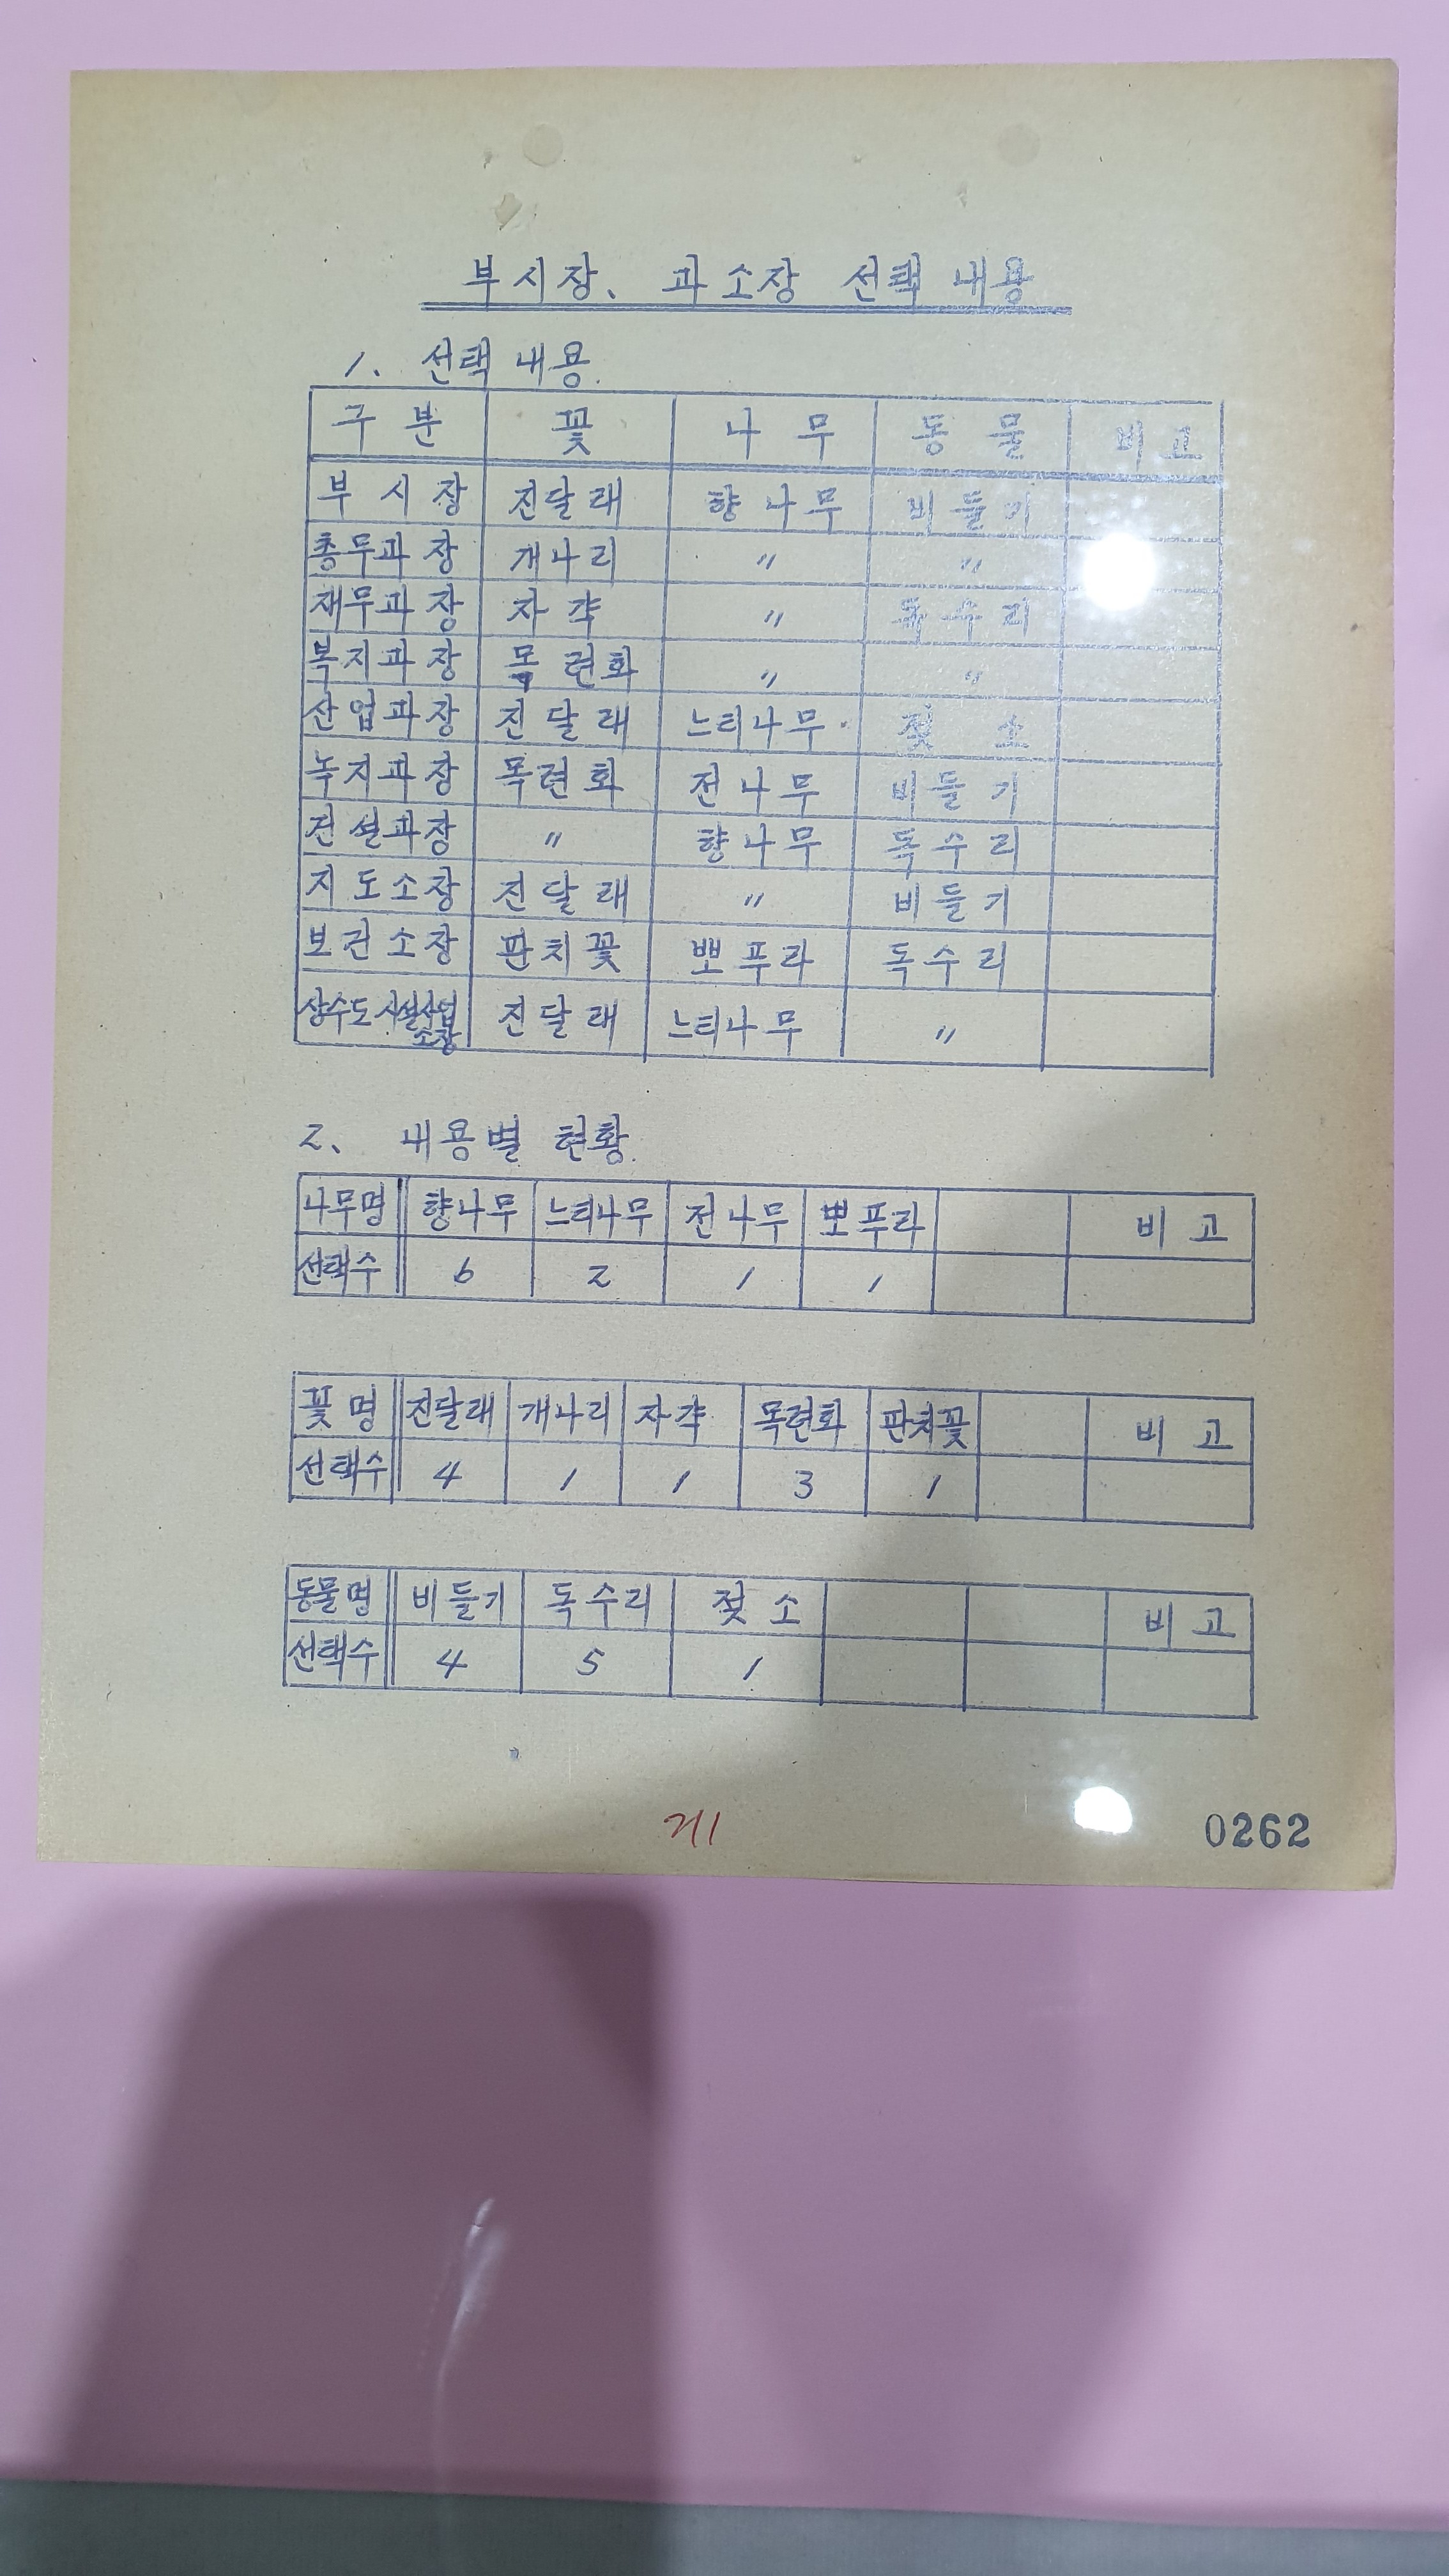 부시장、 과소장 선택 내용
1. 선택 내용.
구분 꽃 나무 동물 비고
부시장 진달래 향나무 비들기
총무과장 개나리 〃 〃
재무과장 자갹 〃 독수리
복지과장 목련화 〃 〃
산업과장 진달래 느티나무 젖소
녹지과장 목련화 전나무 비들기
건설과장 〃 향나무 독수리
지도소장 진달래 〃 비들기
보건소장 판치꽃 뽀푸라 독수리
상수도시설사업소장 진달래 느티나무 〃
2、 내용별 현황.
나무명 향나무 느티나무 전나무 뽀푸라 비고
선택수 6 2 1 1
꽃명 진달래 개나리 자갹 목련화 판치꽃 비고
선택수 4 1 1 3 1
동물명 비들기 독수리 젖소 비고
선택수 4 5 1
0262